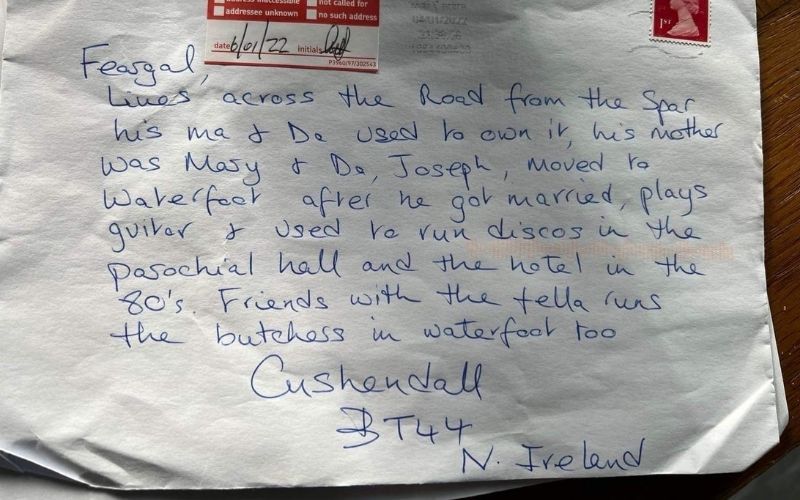 address inaccessible
not called for
addressee unknown
no such address
date 6/01/22 initials
P3960/97/302543
04/01/2022
1ST
Feargal,
Lives across the Road from the Spar
his ma & Da used to own it, his mother
was Mary & Da, Joseph, moved to
Waterfoot after he got married, plays
guitar & used to run discos in the
parochial hall and the hotel in the
80's. Friends with the fella runs
the butchers in waterfoot too
Cushendall
BT44
N. Ireland